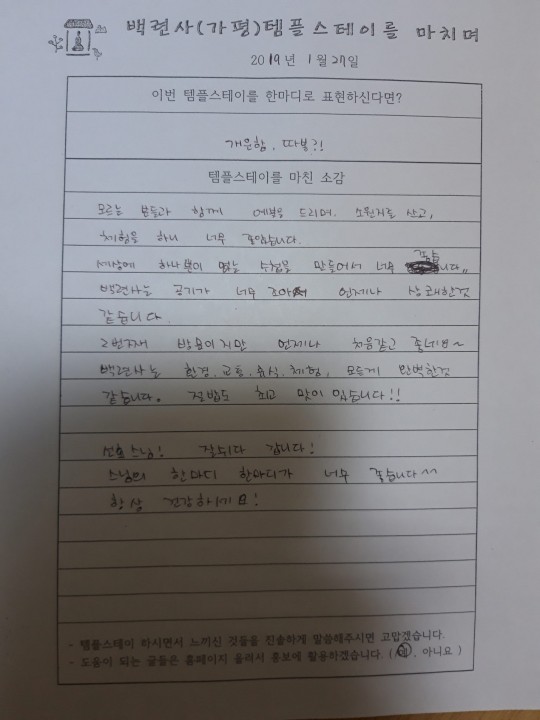 백련사(가평)템플스테이를 마치며
2019년 1월 27일
이번 템플스테이를 한마디로 표현하신다면?
개운함. 따봉?!
템플스테이를 마친 소감
모르는 분들과 함께 예불을 드리며. 소원지도 쓰고,
체험을 하니 너무 좋았습니다.
세상에 하나뿐이 없는 수첩을 만들어서 너무 좋습니다,,
백련사는 공기가 너무 좋아서 언제나 상쾌한것
같습니다.
2번째 방문이지만 언제나 처음같은 좋네요~
백련사는 환경, 교통, 휴식, 체험, 모든게 완벽한것
같습니다. 절밥도 최고 맛이 있습니다!!
스님! 잘쉬다 갑니다!
스님의 한마디 한마디가 너무 좋습니다^^
항상 건강하세요!
- 템플스테이 하시면서 느끼신 것들을 진솔하게 말씀해주시면 고맙겠습니다.
- 도움이 되는 글들은 홈페이지 올려서 홍보에 활용하겠습니다. ( 예, 아니요 )